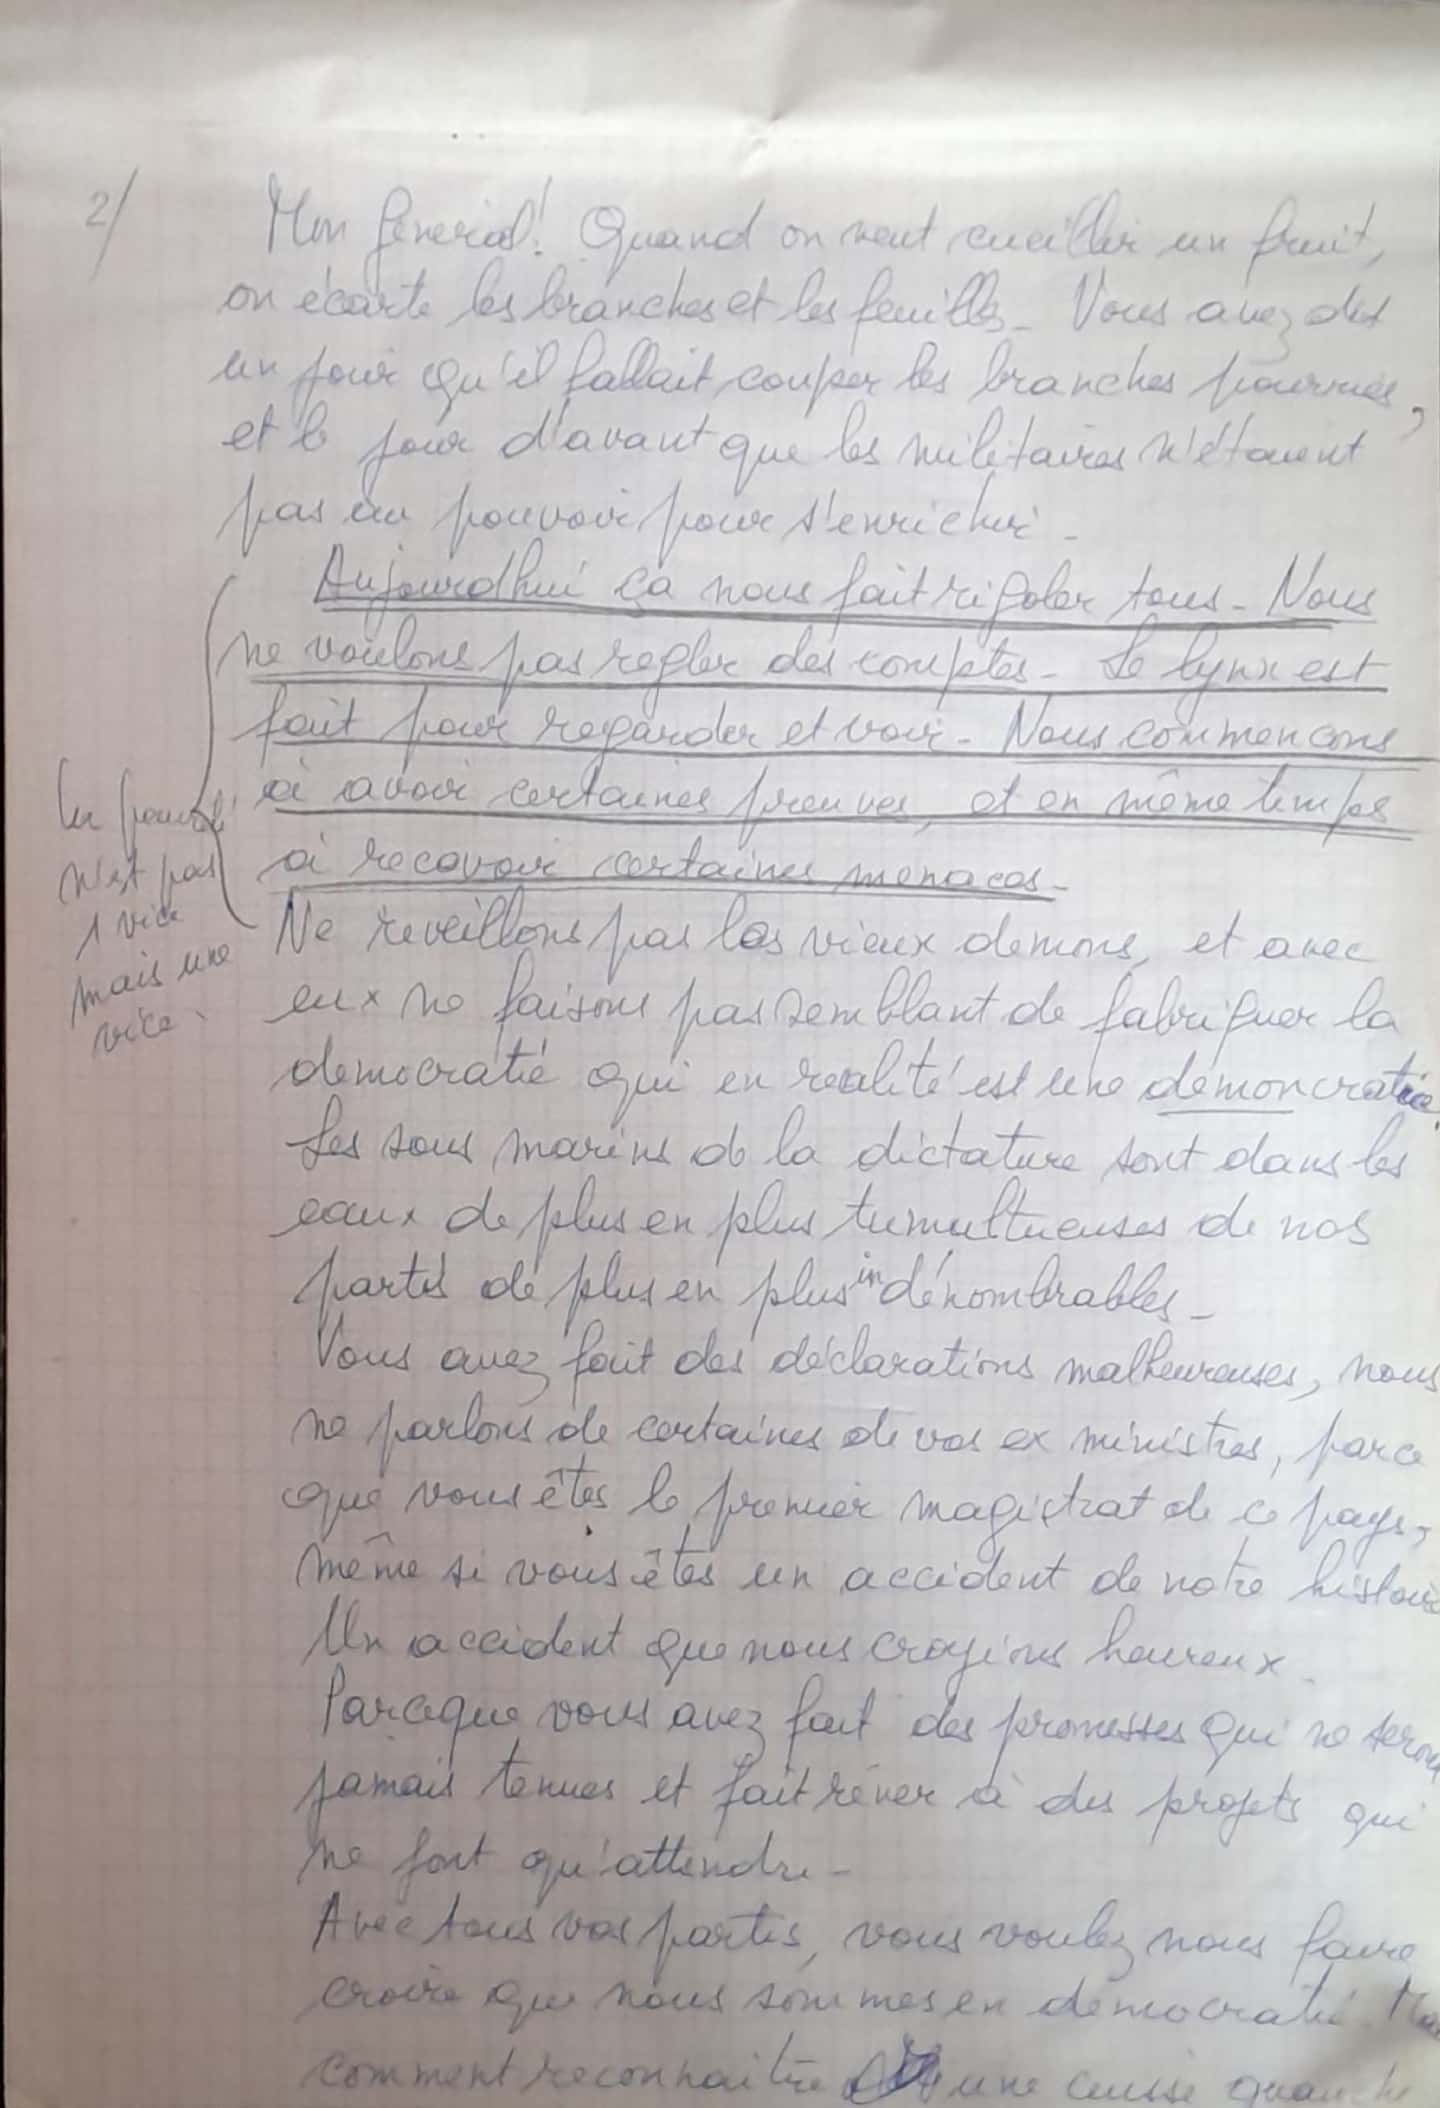 2/
Mon général! Quand on veut cueillir un fruit,
on écarte les branches et les feuilles_ Vous avez dit
un jour qu'il fallait couper les branches pourries,
et le jour d'avant que les militaires n'étaient
pas au pouvoir pour s'enrichir_
Aujourdhui ça nous fait rigoler tous_ Nous
ne voulons pas regler des comptes_ Le lynx est
fait pour regarder et voir_ Nous commencons
à avoir certaines preuves, et en même temps
à recevoir certaines menaces_
n'est pas
1 vice
mais une
vice
Ne reveillons pas les vieux demons, et avec
eux ne faisons pas semblant de fabriquer la
democratie qui en realité est une démoncratie.
Les sous marins de la dictature sont dans les
eaux de plus en plus tumultueuses de nos
partis de plus en plus indénombrables_
Vous avez fait des déclarations malheureuses, nous
ne parlons de certaines de vos ex ministres, parce
que vous êtes le premier magistrat de ce pays,
même si vous êtes un accident de notre histoire
Un accident que nous croyions heureux.
Parceque vous avez fait des promesses qui ne seront
jamais tenues et fait rêver à des projets qui
ne font qu'attendre_
Avec tous vos partis, vous voulez nous faire
croire que nous sommes en démocratie.
comment reconnaitre une cuisse